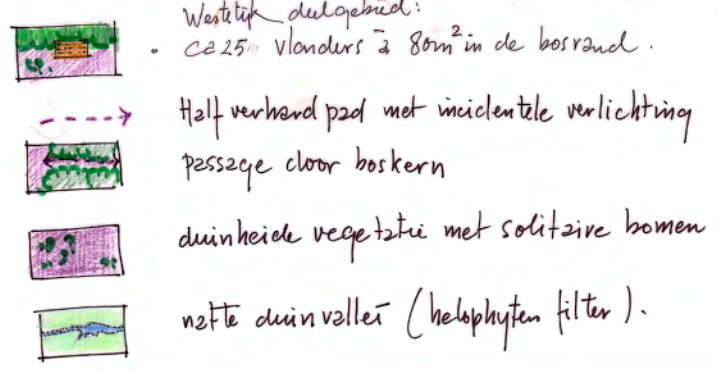 Westelijk deelgebied:
• ca 25 vlonders à 80m² in de bosrand.
Half verhard pad met incidentele verlichting
passage door boskern
duinheide vegetatie met solitaire bomen
natte duinvallei (helophyten filter).